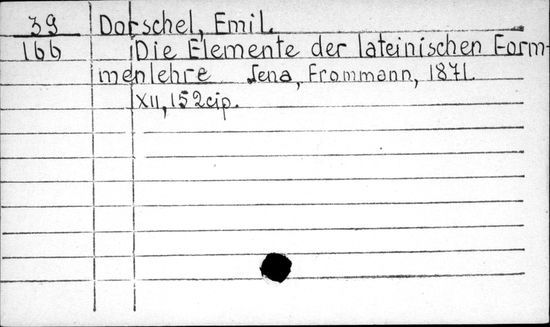 39 Dorschel, Emil.
166 Die Elemente der lateinischen Form-
menlehre Jena, Frommann, 1871.
XII, 152 cip.